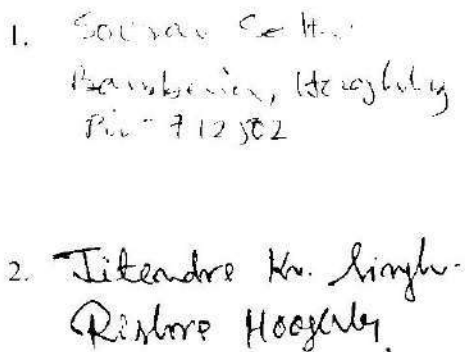 1. Sourav Sett
Bansberia, Hooghly
Pin - 712502
2. Jitendra Kr. Singh.
Rishra Hooghly.